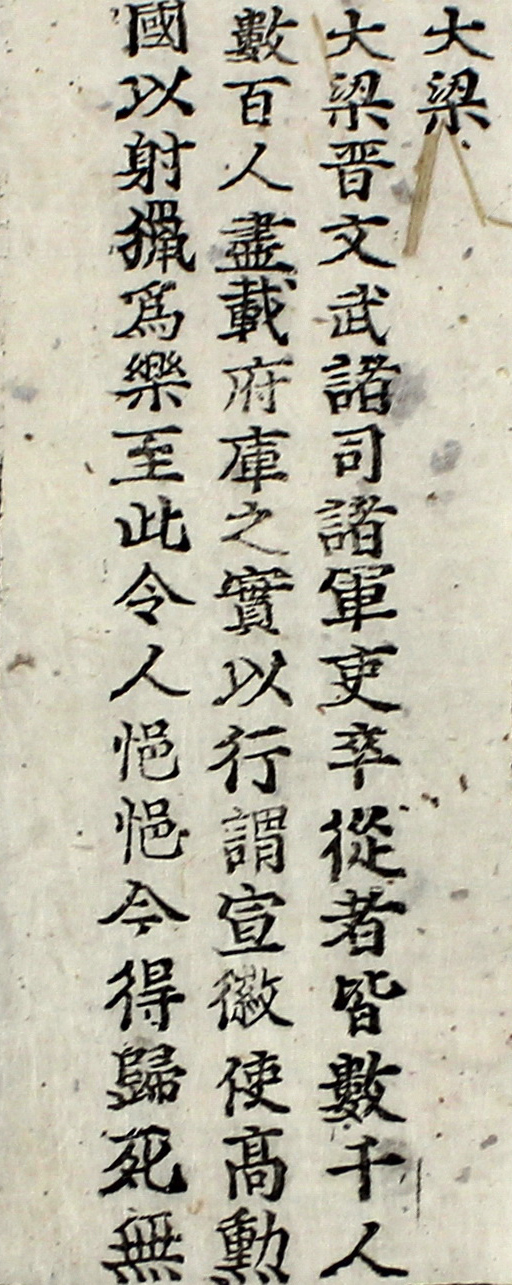 大梁
大梁晋文武諸司諸軍吏卒從者皆數千人
數百人盡載府庫之實以行謂宣徽使高勲
國以射獵爲樂至此令人悒悒今得歸死無